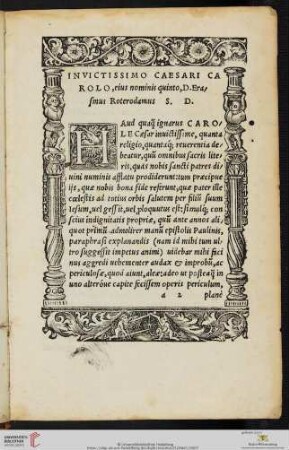 INVICTISSIMO CAESARI CA
ROLO, eius nominis quinto, D. Eras
mus Roterodamus S. D.
HAud quaq̃ ignarus CARO-
LE Cæsar inuictissime, quanta
religio, quantaq́; reuerentia de
beatur, quũ omnibus sacris lite
ris, quas nobis sancti patres di
uini numinis afflatu prodiderunt: tum præcipue
ijs, quæ nobis bona fide referunt, quæ pater ille
cælestis ad totius orbis salutem per filiũ suum
Iesum, uel gessit, uel ploquutus est: simulq́; con
scius indignitatis propriæ, quũ ante annos ali
quot primũ admolirer manũ epistolis Paulinis,
paraphrasi explanandis (nam id mihi tum ul
tro suggessit impetus animi) uidebar mihi faci
nus aggredi uehementer audax & improbũ, ac
periculosæ, quod aiunt, aleæ: adeo ut posteaq̃ in
uno alteróue capite fecissem operis periculum,
a 2 plane